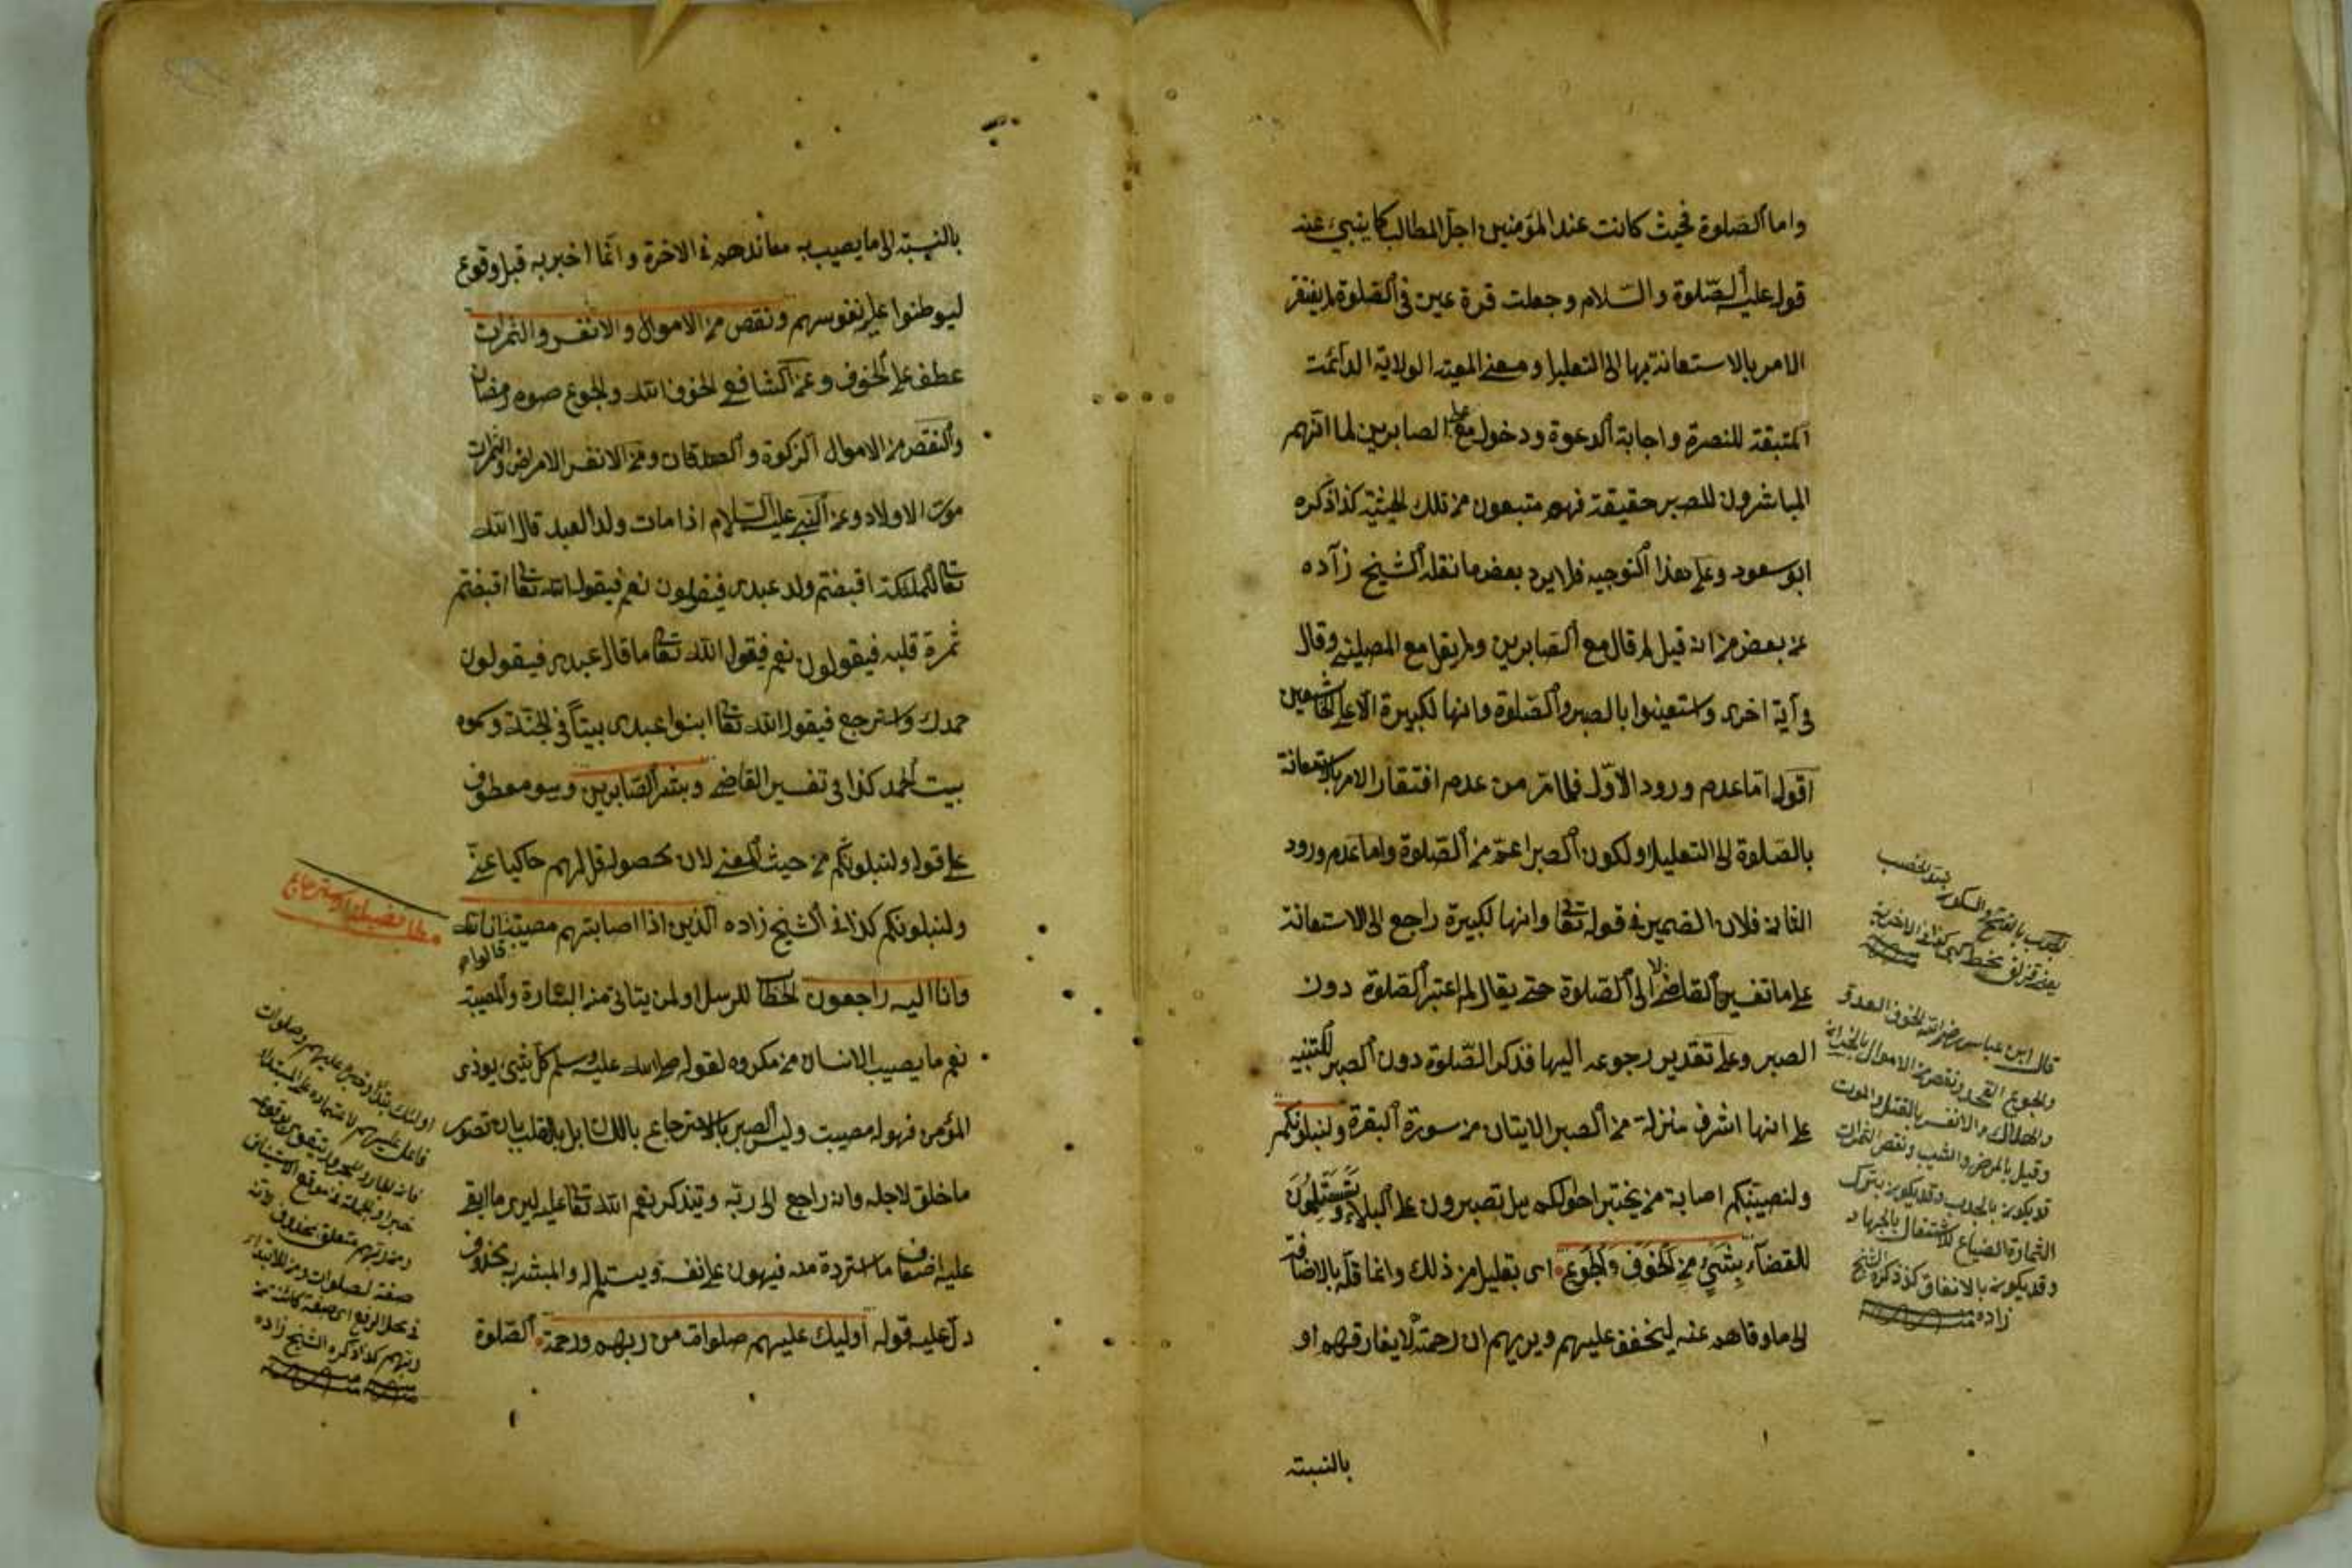 واما الصلوة فحيث كانت عند المؤمنين اجل المطالب كما ينبئ عنه
قوله عليه الصلوة والسلام وجعلت قرة عينى فى الصلوة لم يفتقر
الامر بالاستعانة بها الى التعليل ومعنى المعية الولاية الدائمة
المتبقة للنصرة واجابة الدعوة ودخول مع على الصابرين لما انهم
المباشرون للصبر حقيقة فهم متبعون من تلك الحيثية كذا ذكره
ابو سعود وعلى هذا التوجيه فلا يرد بعض ما نقله الشيخ زاده
عن بعض من انه قيل لم قال مع الصابرين ولم يقل مع المصلين وقال
فى آية اخرى واستعينوا بالصبر والصلوة وانها لكبيرة الا على الخاشعين
اقول اما عدم ورود الاول فلما مر من عدم افتقار الامر بالاستعانة
بالصلوة الى التعليل ولكون الصبر اعم من الصلوة واما عدم ورود
الثانى فلان الضمير فى قوله تعا وانها لكبيرة راجع الى الاستعانة
على ما تفسير القاضى لا الى الصلوة حتى يقال لم اعتبر الصلوة دون
الصبر وعلى تقدير رجوعه اليها فذكر الصلوة دون الصبر للتنبيه
على انها اشرف منزلة من الصبر الايتان من سورة البقرة ولنبلونكم
ولنصيبنكم اصابة من يختبر احوالكم هل تصبرون على البلاء وتستسلمون
للقضاء بشئ من الخوف والجوع اى بقليل من ذلك وانما قلله بالاضافة
الى ما وقاهم عنه ليخفف عليهم ويريهم ان رحمته لا يفارقهم او
بالنسبة
الجدب بالفتح والسكون ضد الخصب
قال ابن عباس رضى الله الخوف العدو
والجوع القحط ونقص من الاموال بالخسران
والهلاك والانفس بالقتل والموت
وقيل بالمرض والشيب ونقص الثمرات
قد يكون بالجدب وقد يكون بترك
الثمارة الضياع للاشتغال بالجهاد
وقد يكون بالانفاق كذا ذكره الشيخ
زاده
بالنسبة الى ما يصيب به معاندهم فى الاخرة وانما اخبر به قبل وقوع
ليوطنوا عليه نفوسهم ونقص من الاموال والانفس والثمرات
عطف على الخوف وعن الشافعى الخوف الله والجوع صوم رمضان
والنقص من الاموال الزكوة والصدقات ومن الانفس الامراض والثمرات
موت الاولاد وعن النبى عليه السلام اذا مات ولد العبد قال الله
تعا للملئكة اقبضتم ولد عبدى فيقولون نعم فيقول الله تعا اقبضتم
ثمرة قلبه فيقولون نعم فيقول الله تعا ما قال عبدى فيقولون
حمدك واسترجع فيقول الله تعا ابنوا عبدى بيتا فى الجنة وسموه
بيت الحمد كذا فى تفسير القاضى وبشر الصابرين وهو معطوف
على قوله ولنبلونكم من حيث المعنى لان محصوله قل لهم حاكيا عنى
ولنبلونكم كذا فى الشيخ زاده الذين اذا اصابتهم مصيبة قالوا انا لله
وانا اليه راجعون الخطاب للرسل او لمن يتاتى منه البشارة والمصيبة
نعم ما يصيب الانسان من مكروه لقوله صلى الله عليه وسلم كل شئ يوذى
المؤمن فهو له مصيبت وليس الصبر بالاسترجاع باللسان بل بالقلب بان تصور
ما خلق لاجله وانه راجع الى ربه ويتذكر نعم الله تعا عليه ليرى ما ابقى
عليه اضعاف ما استرده منه فيهون على نفسه ويستسلم له والمبشر به محذوف
دل عليه قوله اوليك عليهم صلوات من ربهم ورحمة الصلوة
اولئك مبتدأ وخبره عليهم وصلوات
فاعل عليهم لاعتماده على المبتدأ
ومن ربهم متعلق بمحذوف لانه
صفة لصلوات ومن للابتداء
فى محل الرفع اى صفة كائنة من
ربهم كذا ذكره الشيخ زاده